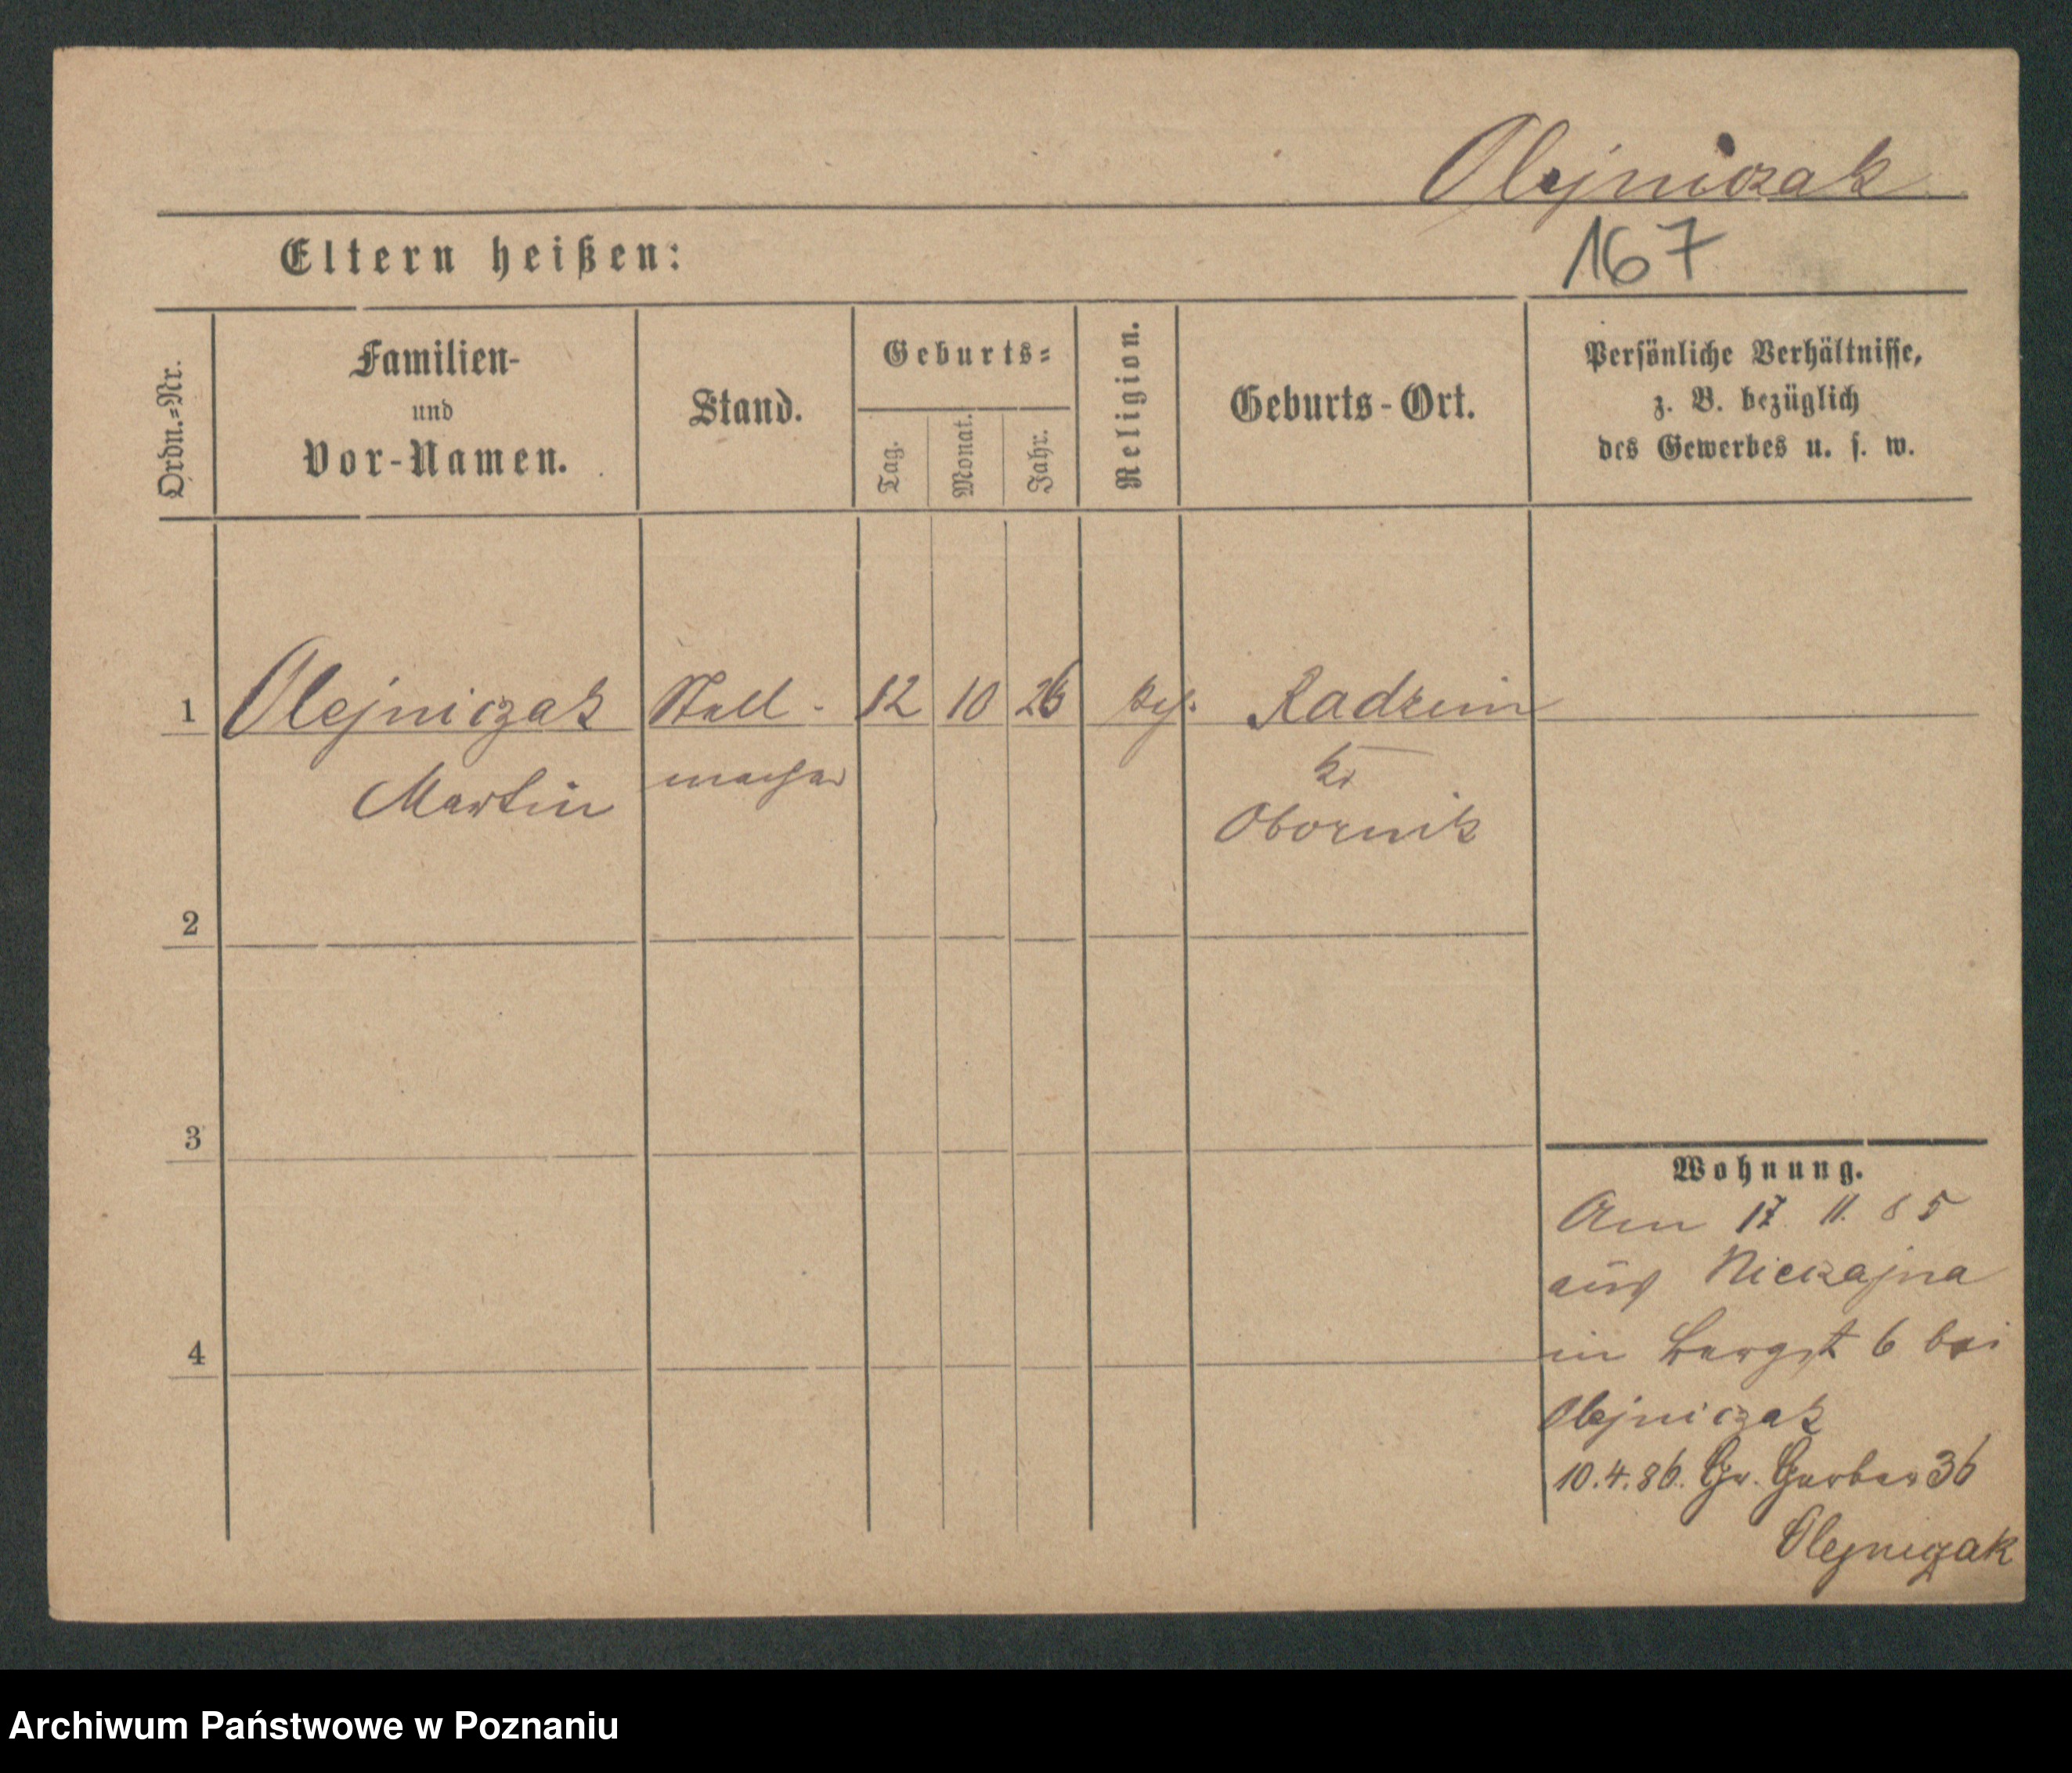 Olejniczak
167
Eltern heißen:
Ordn.=Nr.
Familien-
und
Vor-Namen.
Stand.
Geburts=
Tag.
Monat.
Jahr.
Religion.
Geburts-Ort.
Persönliche Verhältnisse,
z. B. bezüglich
des Gewerbes u. s. w.
1 Olejniczak Stell- 12 10 26 Radzim
Martin macher Kr
Obornik
2
3
4
Wohnung.
Am 17 11. 85
aus Nieczajna
in Bergst 6 bei
Olejniczak
10.4.86. Gr. Gerber 36
Olejniczak
Archiwum Państwowe w Poznaniu